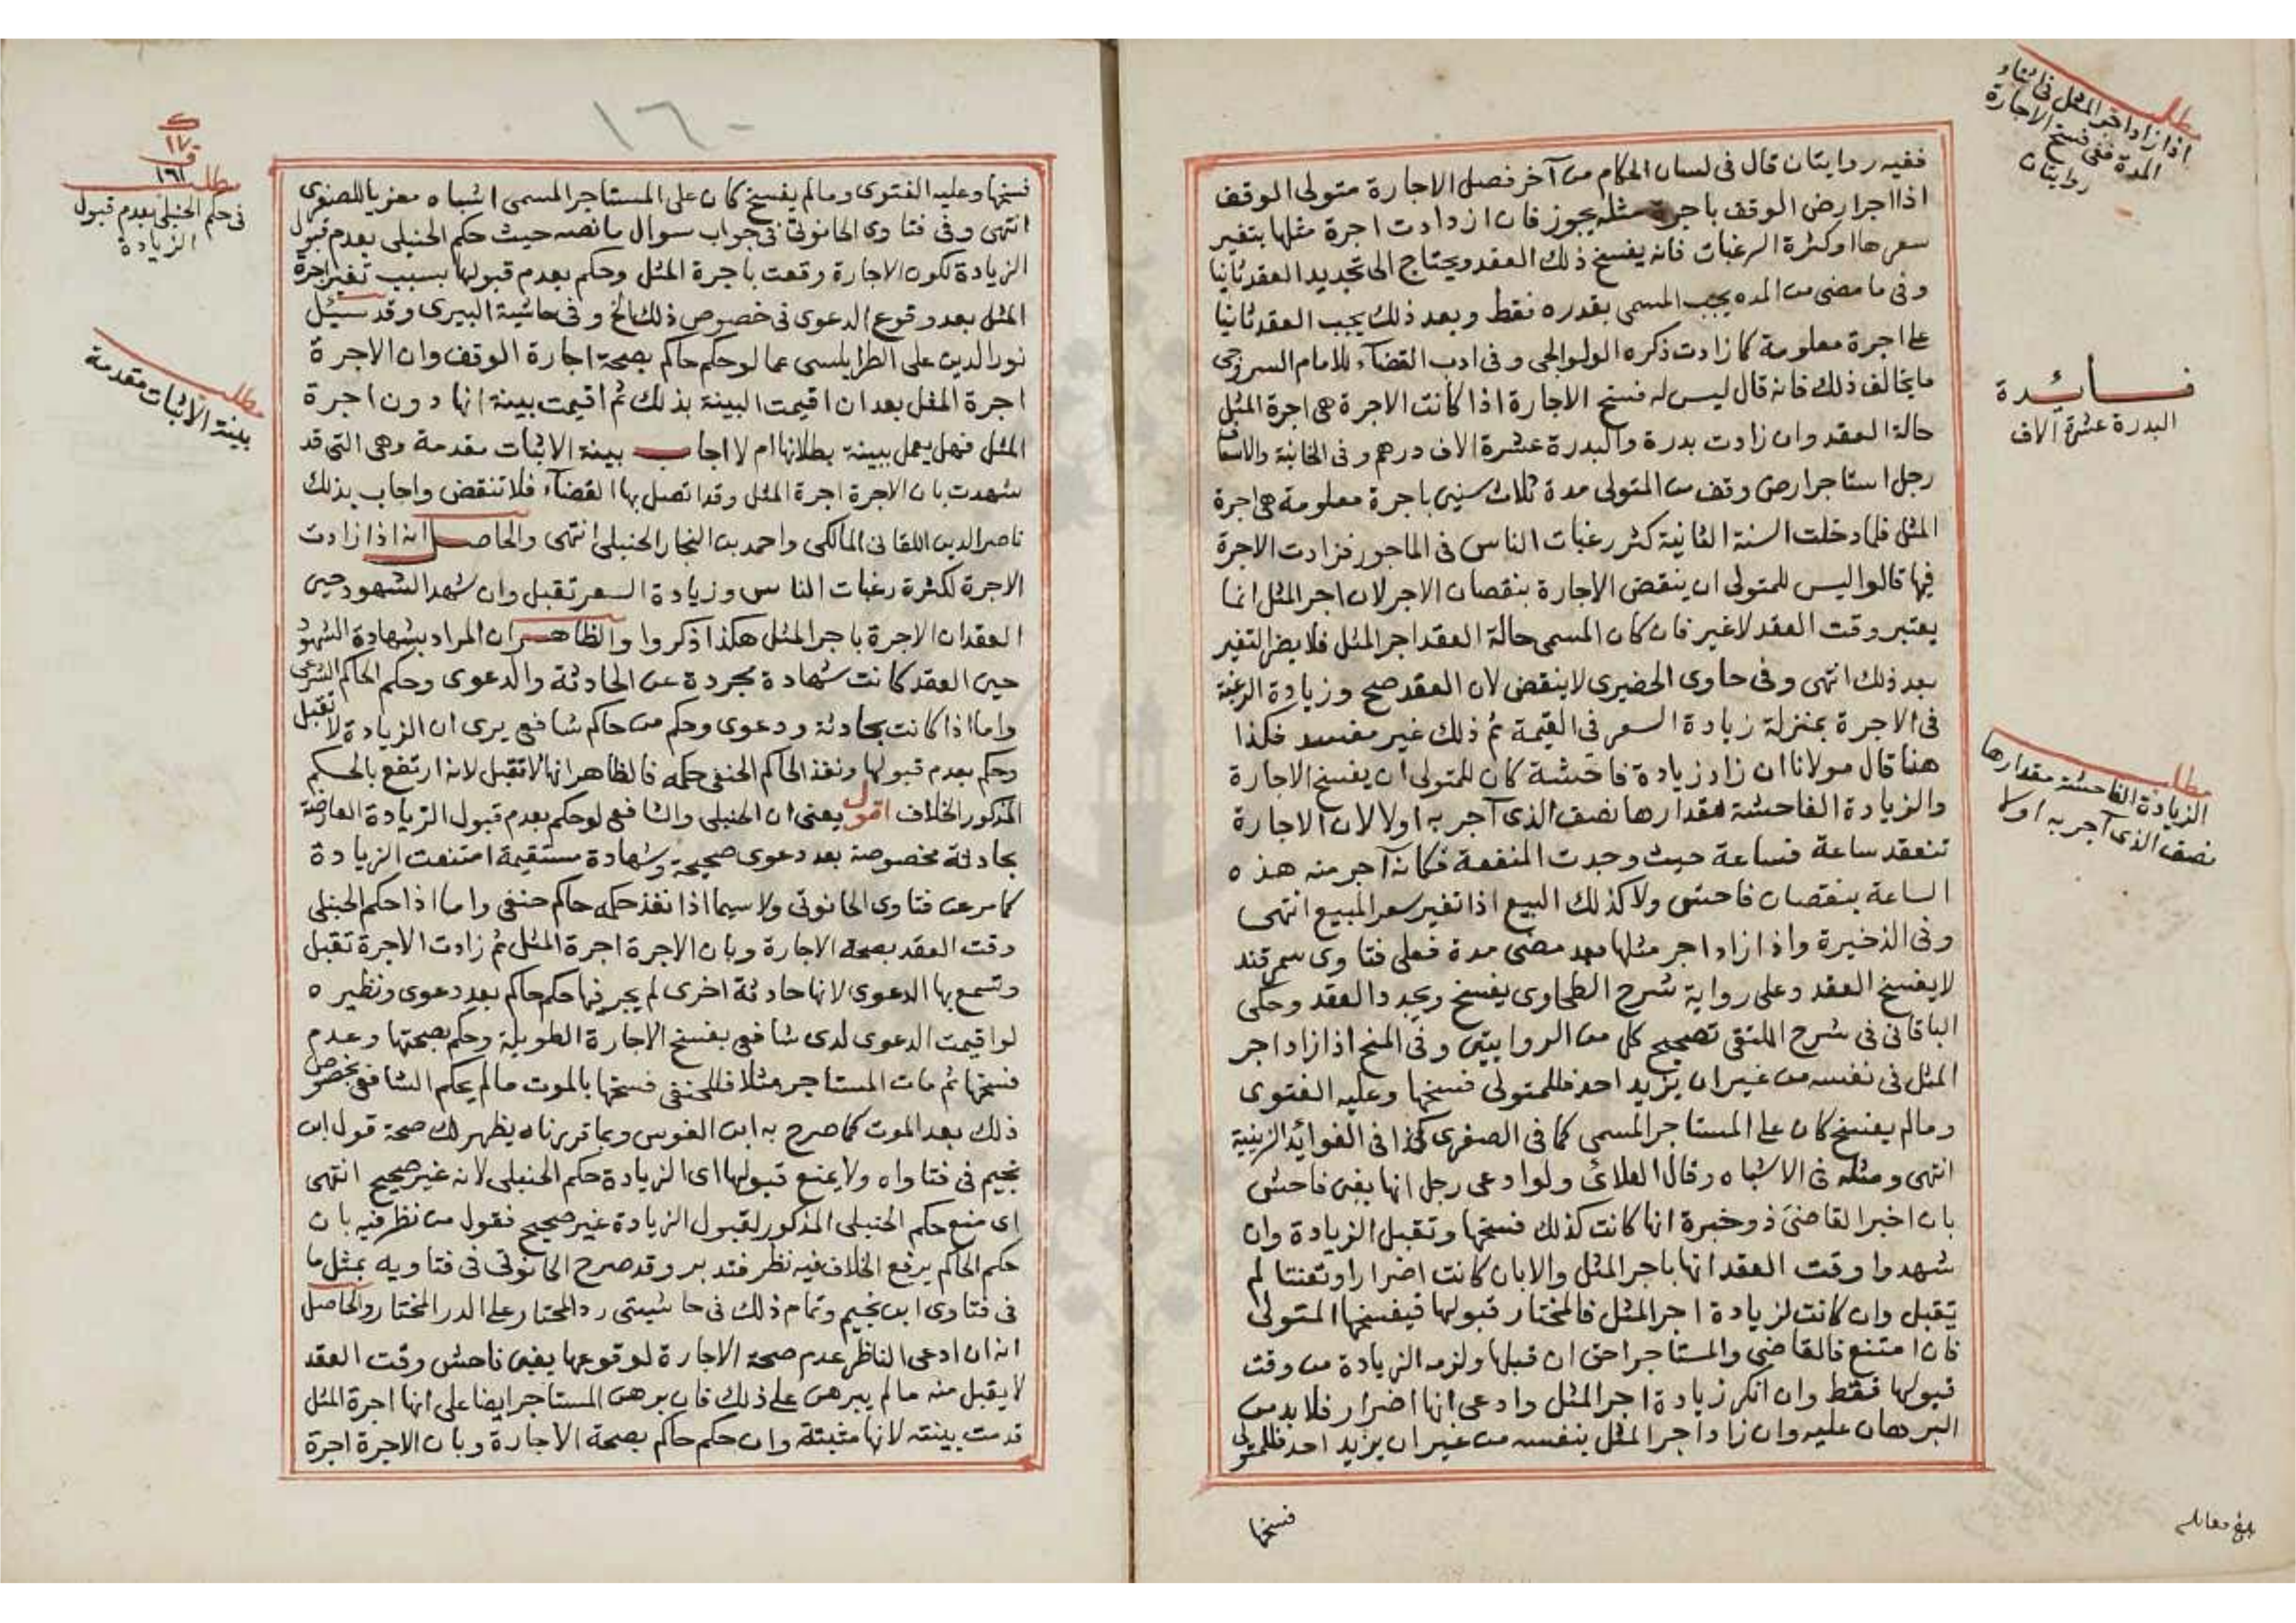 مطلب
اذا زاد اجر المثل فى اثناء
المدة ففى فسخ الاجارة
روايتان
ففيه روايتان قال فى لسان الحكام من آخر فصل الاجارة متولى الوقف
اذا اجر ارض الوقف باجرة مثله يجوز فان ازدادت اجرة مثلها بتغير
سعرها او كثرة الرغبات فانه يفسخ ذلك العقد ويحتاج الى تجديد العقد ثانيا
وفى ما مضى من المده يجب المسمى بقدره فقط وبعد ذلك يجب العقد ثانيا
على اجرة معلومة كما زادت ذكره الولوالجى وفى ادب القضآء للامام السروجى
ما يخالف ذلك فانه قال ليس له فسخ الاجارة اذا كانت الاجرة هى اجرة المثل
حالة العقد وان زادت بدرة والبدرة عشرة الاف درهم وفى الخانية والاسعاف
رجل استاجر ارض وقف من المتولى مدة ثلاث سنين باجرة معلومة هى اجرة
المثل فلما دخلت السنة الثانية كثر رغبات الناس فى الماجور فزادت الاجرة
فيها قالوا ليس للمتولى ان ينقض الاجارة بنقصان الاجر لان اجر المثل انما
يعتبر وقت العقد لاغير فان كان المسمى حالة العقد اجر المثل فلا يضر التغير
بعد ذلك انتهى وفى حاوى الحضيرى لا ينقض لان العقد صح وزيادة الرغبة
فى الاجرة بمنزلة زيادة السعر فى القيمة ثم ذلك غير مفسد فكذا
هنا قال مولانا ان زاد زيادة فاحشة كان للمتولى ان يفسخ الاجارة
والزيادة الفاحشة مقدارها نصف الذى آجر به اولا لان الاجارة
تنعقد ساعة فساعة حيث وجدت المنفعة فكانه آجر منه هذه
الساعة بنقصان فاحش ولا كذلك البيع اذا تغير سعر المبيع انتهى
وفى الذخيرة واذا زاد اجر مثلها بعد مضى مدة فعلى فتاوى سمرقند
لا يفسخ العقد وعلى رواية شرح الطحاوى يفسخ ويجدد العقد وحكى
الباقانى فى شرح الملتقى تصحيح كل من الروايتين وفى المنح اذا زاد اجر
المثل فى نفسه من غير ان يزيد احد فللمتولى فسخها وعليه الفتوى
ومالم يفسخ كان على المستاجر المسمى كما فى الصغرى كذا فى الفوائد الزينية
انتهى ومثله فى الاشباه وقال العلائى ولو ادعى رجل انها بغبن فاحش
بان اخبر القاضى ذو خبرة انها كانت كذلك فسخها وتقبل الزيادة وان
شهدوا وقت العقد انها باجر المثل والا بان كانت اضرارا وتعنتا لم
تقبل وان كانت لزيادة اجر المثل فالمختار قبولها فيفسخها المتولى
فان امتنع فالقاضى والمستاجر احق ان قبلها ولزمه الزيادة من وقت
قبولها فقط وان انكر زيادة اجر المثل وادعى انها اضرار فلابد من
البرهان عليه وان زاد اجر المثل بنفسه من غير ان يزيد احد فللمتولى
فسخها
فائدة
البدرة عشرة الاف
مطلب
الزيادة الفاحشة مقدارها
نصف الذى آجر به اولا
بلغ مقابله
١٦٠
فسخها وعليه الفتوى ومالم يفسخ كان على المستاجر المسمى اشباه معزيا للصغرى
انتهى وفى فتاوى الحانوتى فى جواب سوال ما نصه حيث حكم الحنبلى بعدم قبول
الزيادة لكون الاجارة وقعت باجرة المثل وحكم بعدم قبولها بسبب تغير اجرة
المثل بعد وقوع الدعوى فى خصوص ذلك الخ وفى حاشية البيرى وقد سئيل
نور الدين على الطرابلسى عما لو حكم حاكم بصحة اجارة الوقف وان الاجرة
اجرة المثل بعد ان اقيمت البينة بذلك ثم اقيمت بينة انها دون اجرة
المثل فهل يعمل ببينة بطلانها ام لا اجاب بينة الاثبات مقدمة وهى التى قد
شهدت بان الاجرة اجرة المثل وقد اتصل بها القضآء فلا تنقض واجاب بذلك
ناصر الدين اللقانى المالكى واحمد بن النجار الحنبلى انتهى والحاصل انه اذا زادت
الاجرة لكثرة رغبات الناس وزيادة السعر تقبل وان شهد الشهود حين
العقد ان الاجرة باجر المثل هكذا ذكروا والظاهر ان المراد بشهادة الشهود
حين العقد كانت شهادة مجردة عن الحادثة والدعوى وحكم الحاكم الشرعى
واما اذا كانت بحادثة ودعوى وحكم من حاكم شافعى يرى ان الزيادة لا تقبل
وحكم بعدم قبولها ونفذ الحاكم الحنفى حكمه فالظاهر انها لا تقبل لانه ارتفع بالحكم
المذكور الخلاف اقول يعنى ان الحنبلى والشافعى لو حكم بعدم قبول الزيادة العارضة
بحادثة مخصوصة بعد دعوى صحيحة وشهادة مستقيمة امتنعت الزيادة
كما مر عن فتاوى الحانوتى ولا سيما اذا نفذ حكمه حاكم حنفى واما اذا حكم الحنبلى
وقت العقد بصحة الاجارة وبان الاجرة اجرة المثل ثم زادت الاجرة تقبل
وتسمع بها الدعوى لانها حادثة اخرى لم يجر فيها حكم حاكم بعد دعوى ونظيره
لو اقيمت الدعوى لدى شافعى بفسخ الاجارة الطويلة وحكم بصحتها وعدم
فسخها ثم مات المستاجر مثلا فللحنفى فسخها بالموت مالم يحكم الشافعى بخصوص
ذلك بعد الموت كما صرح به ابن الغرس وبما قررناه يظهر لك صحة قول ابن
نجيم فى فتاواه ولا يمنع قبولها اى الزيادة حكم الحنبلى لانه غير صحيح انتهى
اى منع حكم الحنبلى المذكور لقبول الزيادة غير صحيح فقول من نظر فيه بان
حكم الحاكم يرفع الخلاف فيه نظر فتدبر وقد صرح الحانوتى فى فتاويه بمثل ما
فى فتاوى ابن نجيم وتمام ذلك فى حاشيتى رد المحتار على الدر المختار والحاصل
انه ان ادعى الناظر عدم صحة الاجارة لوقوعها بغبن فاحش وقت العقد
لا يقبل منه مالم يبرهن على ذلك فان برهن المستاجر ايضا على انها اجرة المثل
قدمت بينته لانها مثبتة وان حكم حاكم بصحة الاجارة وبان الاجرة اجرة
١٧
١٦١
مطلب
فى حكم الحنبلى بعدم قبول
الزيادة
مطلب
بينة الاثبات مقدمة